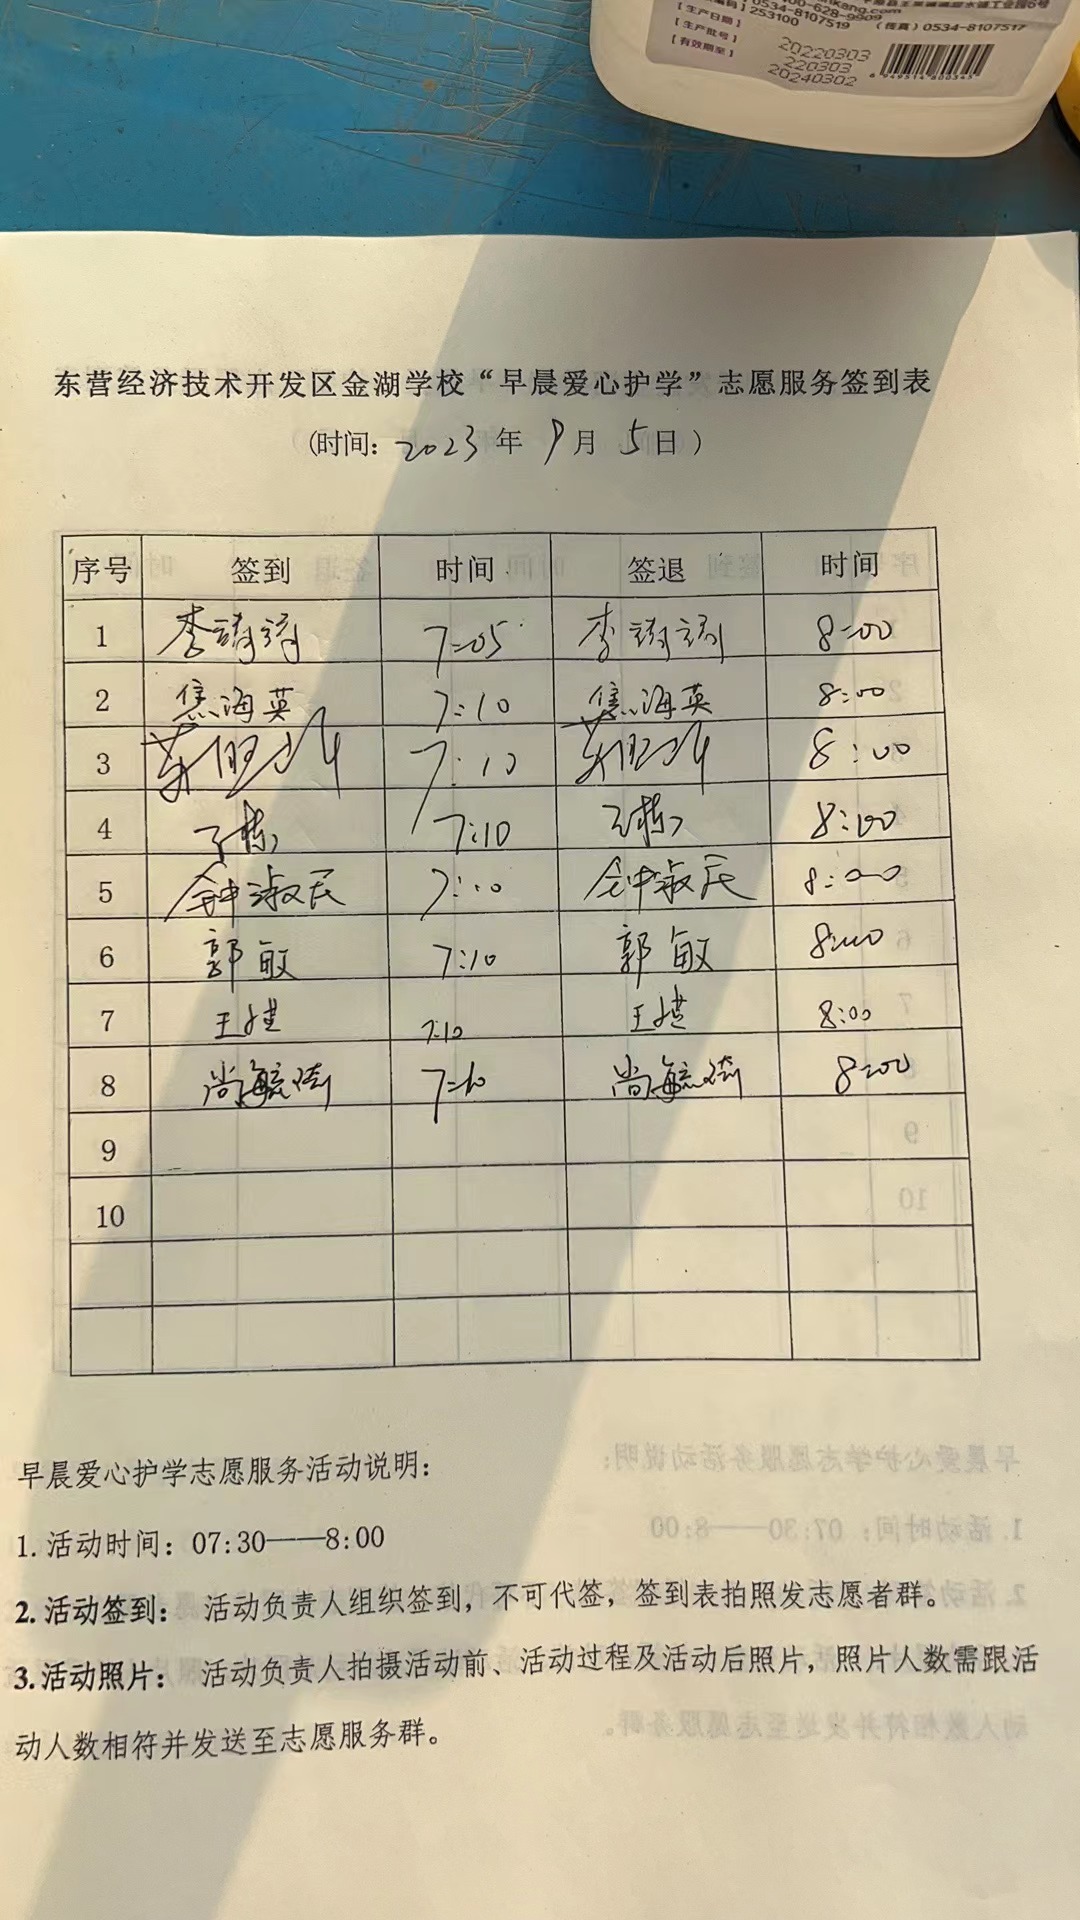 0534-8107519 (传真) 0534-8107517
253100
【生产日期】 20220303
【生产批号】 220303
【有效期至】 20240302
东营经济技术开发区金湖学校“早晨爱心护学”志愿服务签到表
(时间: 2023年 9月 5日)
序号 签到 时间 签退 时间
1 李 7:05 李 8:00
2 焦海英 7:10 焦海英 8:00
3 7:10 8:00
4 7:10 8:00
5 钟淑民 7:10 钟淑民 8:00
6 郭敏 7:10 郭敏 8:00
7 王 7:10 王 8:00
8 尚毓 7:10 尚毓 8:00
9
10
早晨爱心护学志愿服务活动说明:
1.活动时间: 07:30——8:00
2.活动签到: 活动负责人组织签到, 不可代签, 签到表拍照发志愿者群。
3.活动照片: 活动负责人拍摄活动前、活动过程及活动后照片, 照片人数需跟活
动人数相符并发送至志愿服务群。